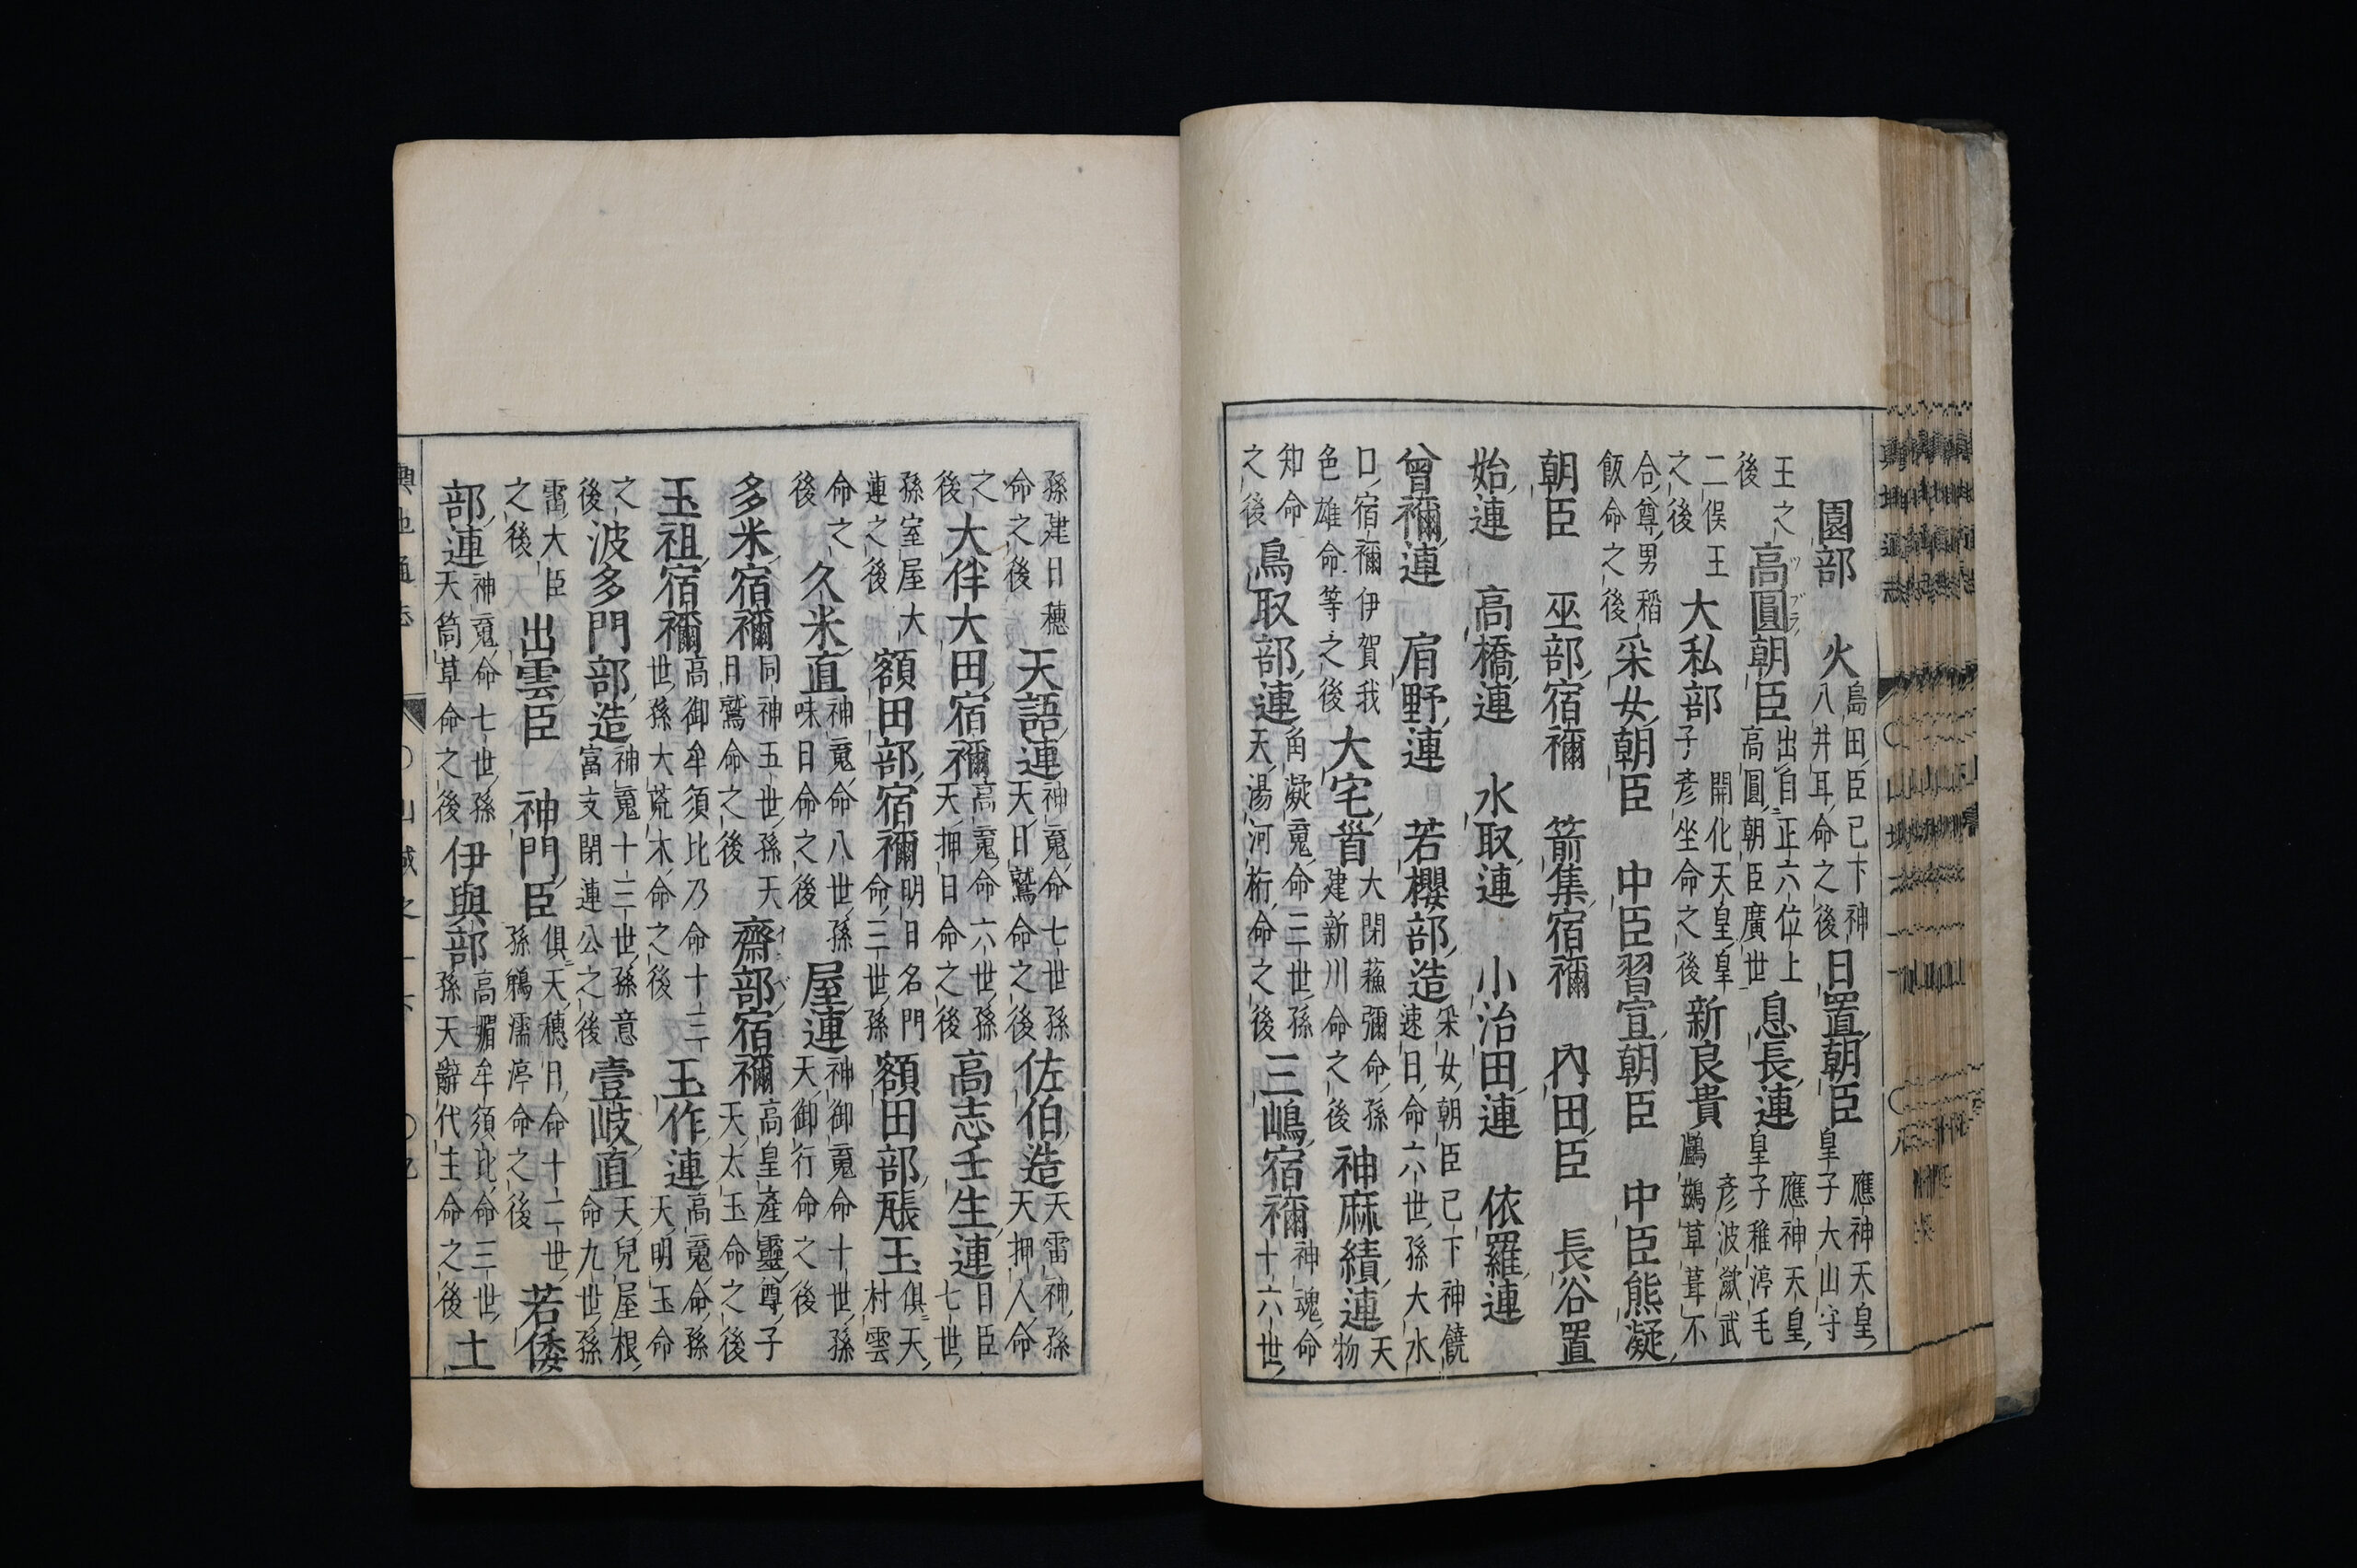 園部 火 島田臣已下神八井耳命之後 日置朝臣 應神天皇皇子大山守
王之後 高圓朝臣 出自正六位上高圓朝臣廣世 息長連 應神天皇皇子稚渟毛
二俣王之後 大私部 開化天皇皇子彦坐命之後 新良貴 彦波瀲武鸕鷀草葺不
合尊男稻飯命之後 采女朝臣 中臣習宜朝臣 中臣熊凝
朝臣 巫部宿禰 箭集宿禰 內田臣 長谷置
始連 高橋連 水取連 小治田連 依羅連
曾禰連 肩野連 若櫻部造 采女朝臣已下神饒速日命六世孫大水
口宿禰伊賀我色雄命等之後 大宅首 大閇蘓彌命孫建新川命之後 神麻績連 天物
知命之後 鳥取部連 角凝䰟命三世孫天湯河桁命之後 三嶋宿禰 神魂命十六世
孫建日穗命之後 天語連 神䰟命七世孫天日鷲命之後 佐伯造 天雷神孫天押人命
之後 大伴大田宿禰 高䰟命六世孫天押日命之後 高志壬生連 日臣七世
孫室屋大連之後 額田部宿禰 明日名門命三世孫 額田部𤭖玉 俱天村雲
命之後 久米直 神䰟命八世孫味日命之後 屋連 神御䰟命十世孫天御行命之後
多米宿禰 同神五世孫天日鷲命之後 齋部宿禰 高皇產靈尊子天太玉命之後
玉祖宿禰 高御牟須比乃命十三世孫大荒木命之後 玉作連 高䰟命孫天明玉命
之後 波多門部造 神䰟十三世孫意富支閇連公之後 壹岐直 天兒屋根命九世孫
雷大臣之後 出雲臣 神門臣 俱天穗日命十二世孫鵜濡渟命之後 若倭
部連 神䰟命七世孫天筒草命之後 伊與部 高媚牟須比命三世孫天辭代主命之後 土